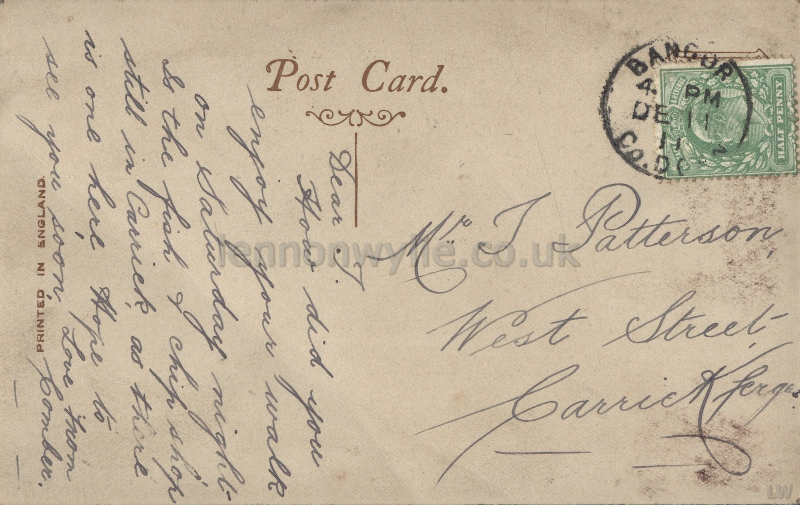 Post Card.
Dear J.
How did you
enjoy your walk
on Saturday night.
Is the fish & chip shop
still in Carrick, as there
is one here, Hope to
see you soon, Love from
Comber.
PRINTED IN ENGLAND
Mr J Patterson,
West Street,
Carrickfergus
BANGOR
4 PM
DE 11
11
CO. DO
HALF PENNY
lennonwylie.co.uk
LW